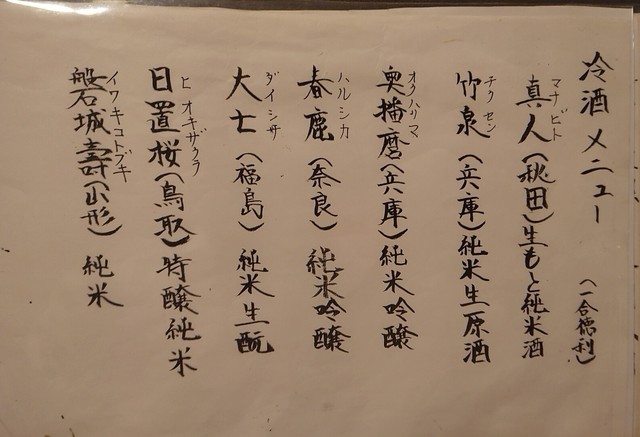 冷酒メニュー (一合徳利)
マナビト
真人(秋田)生もと純米酒
チクセン
竹泉(兵庫)純米生原酒
オクハリマ
奥播磨(兵庫)純米吟醸
ハルシカ
春鹿(奈良)純米吟醸
ダイシチ
大七(福島)純米生酛
ヒオキザクラ
日置桜(鳥取)特醸純米
イワキコトブキ
磐城壽(山形)純米